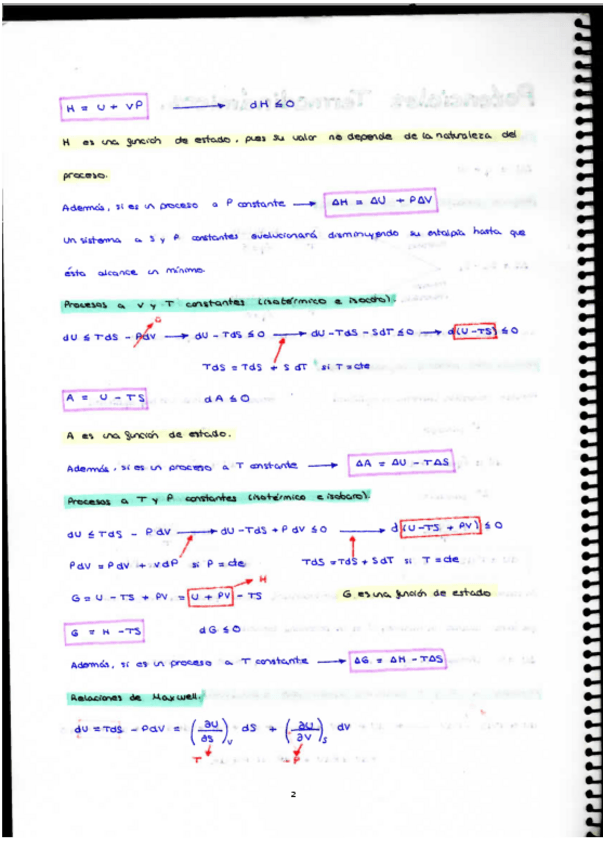 H = U + VP → dH ≤ 0
H es una función de estado, pues su valor no depende de la naturaleza del
proceso.
Además, si es un proceso a P constante → ΔH = ΔU + PΔV
Un sistema a S y P constantes evolucionará disminuyendo su entalpía hasta que
ésta alcance un mínimo.
Procesos a V y T constantes (isotérmico e isocoro).
dU ≤ TdS - PdV → dU - TdS ≤ 0 → dU - TdS - SdT ≤ 0 → d(U-TS) ≤ 0
TdS = TdS + SdT si T = cte
A = U - TS dA ≤ 0
A es una función de estado.
Además, si es un proceso a T constante → ΔA = ΔU - TΔS
Procesos a T y P constantes (isotérmico e isobaro).
dU ≤ TdS - PdV → dU - TdS + PdV ≤ 0 → d(U-TS + PV) ≤ 0
PdV = PdV + VdP si P = cte TdS = TdS + SdT si T = cte
H
G = U - TS + PV = U + PV - TS G es una función de estado
G = H - TS dG ≤ 0
Además, si es un proceso a T constante → ΔG = ΔH - TΔS
Relaciones de Maxwell.
dU = TdS - PdV = (∂U/∂S)V dS + (∂U/∂V)S dV
T P
2